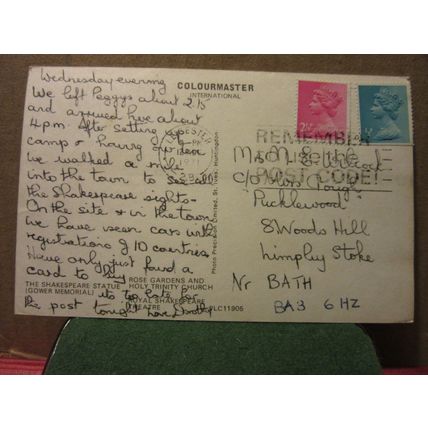 Wednesday evening
We left Peggys about 2.15
and arrived here about
4 pm. After setting up
camp & having
we walked a mile
into the town to see all
the Shakespeare sights.
On the site & in the town
we have seen cars with
registrations of 10 countries.
Have only just found a
card to
its too late for
the post tonight Love Dorothy
COLOURMASTER
INTERNATIONAL
Photo Precision Limited, St. Ives, Huntingdon
THE SHAKESPEARE STATUE
(GOWER MEMORIAL)
ROSE GARDENS AND
HOLY TRINITY CHURCH
ROYAL SHAKESPEARE
THEATRE
PLC11905
2½
REMEMBER
USE THE
POST CODE
c/o
Pucklewood
8 Woods Hill
Limpley Stoke
Nr BATH
BA3 6HZ